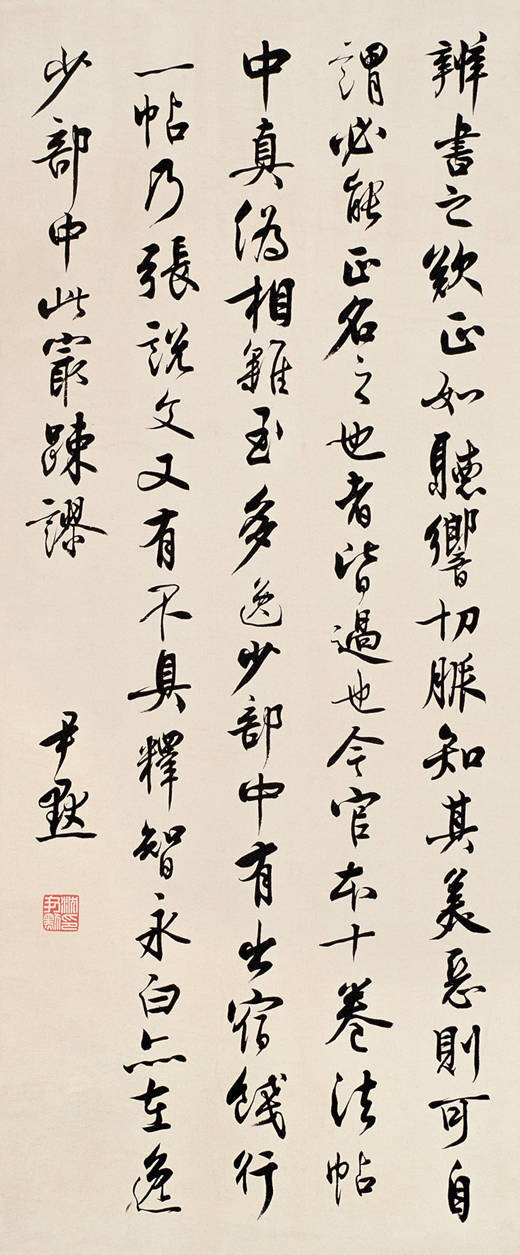 辨書之難正如聽響切脈知其美惡則可自
謂必能正名之也者皆過也今官本十卷法帖
中真偽相雜至多逸少部中有出宿餞行
一帖乃張說文又有不具釋智永白亦在逸
少部中此最踈謬
尹默
沈印尹默